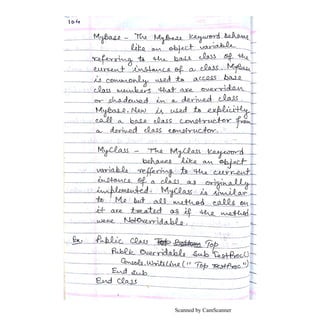 104
MyBase - The MyBase Keyword behaves
like an object variable
referring to the base class of the
current instance of a class. MyBase
is commonly used to access base
class numbers that are overriden
or shadowed in a derived class.
MyBase.New is used to explicitly
call a base class constructor from
a derived class constructor.
MyClass - The MyClass Keyword
behaves like an object
variable reffering to the current
instance of a class as originally
implemented. MyClass is similar
to Me but all method calls on
it are treated as if the method
were NotOverridable.
Ex. Public Class Top
Public Overridable Sub TestProc()
Console.WriteLine("Top TestProc")
End Sub
End Class
Scanned by CamScanner